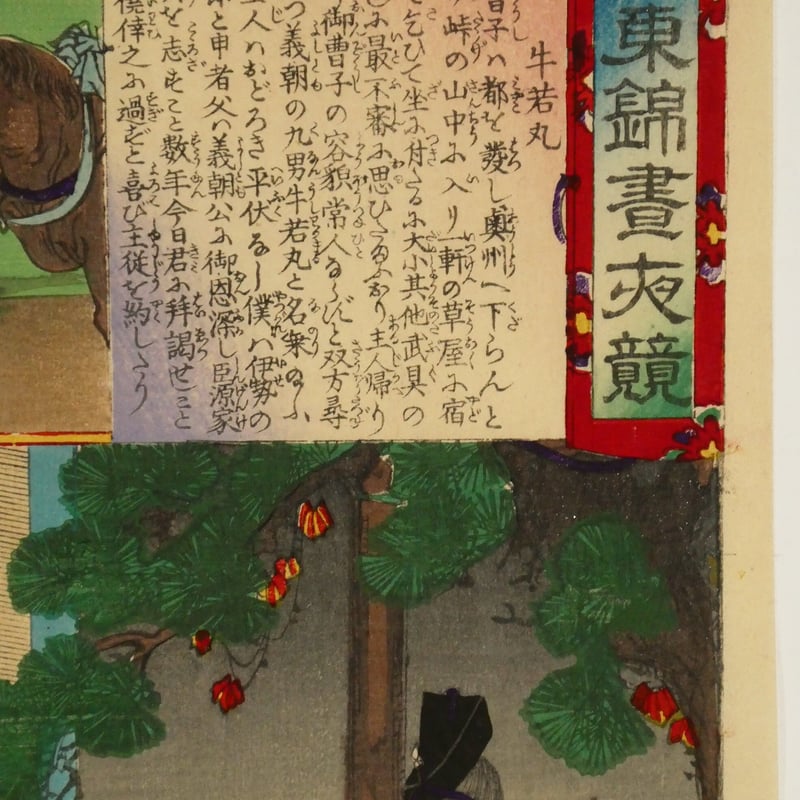 東錦昼夜競
牛若丸
曹子ハ都を発し奥州へ下らんと
峠の山中に入り一軒の草屋に宿
乞ひて坐に付たるに大小其他武具の
最不審に思ひたるに主人帰り
御曹子の容貌常人ならずと双方尋
つ義朝の九男牛若丸と名乗のふ
主人ハおどろき平伏なし僕ハ伊勢の
と申者父ハ義朝公に御恩深し臣源家
を志すこと数年今日君に拝謁せこと
僥倖之に過ずと喜び主従を約したり